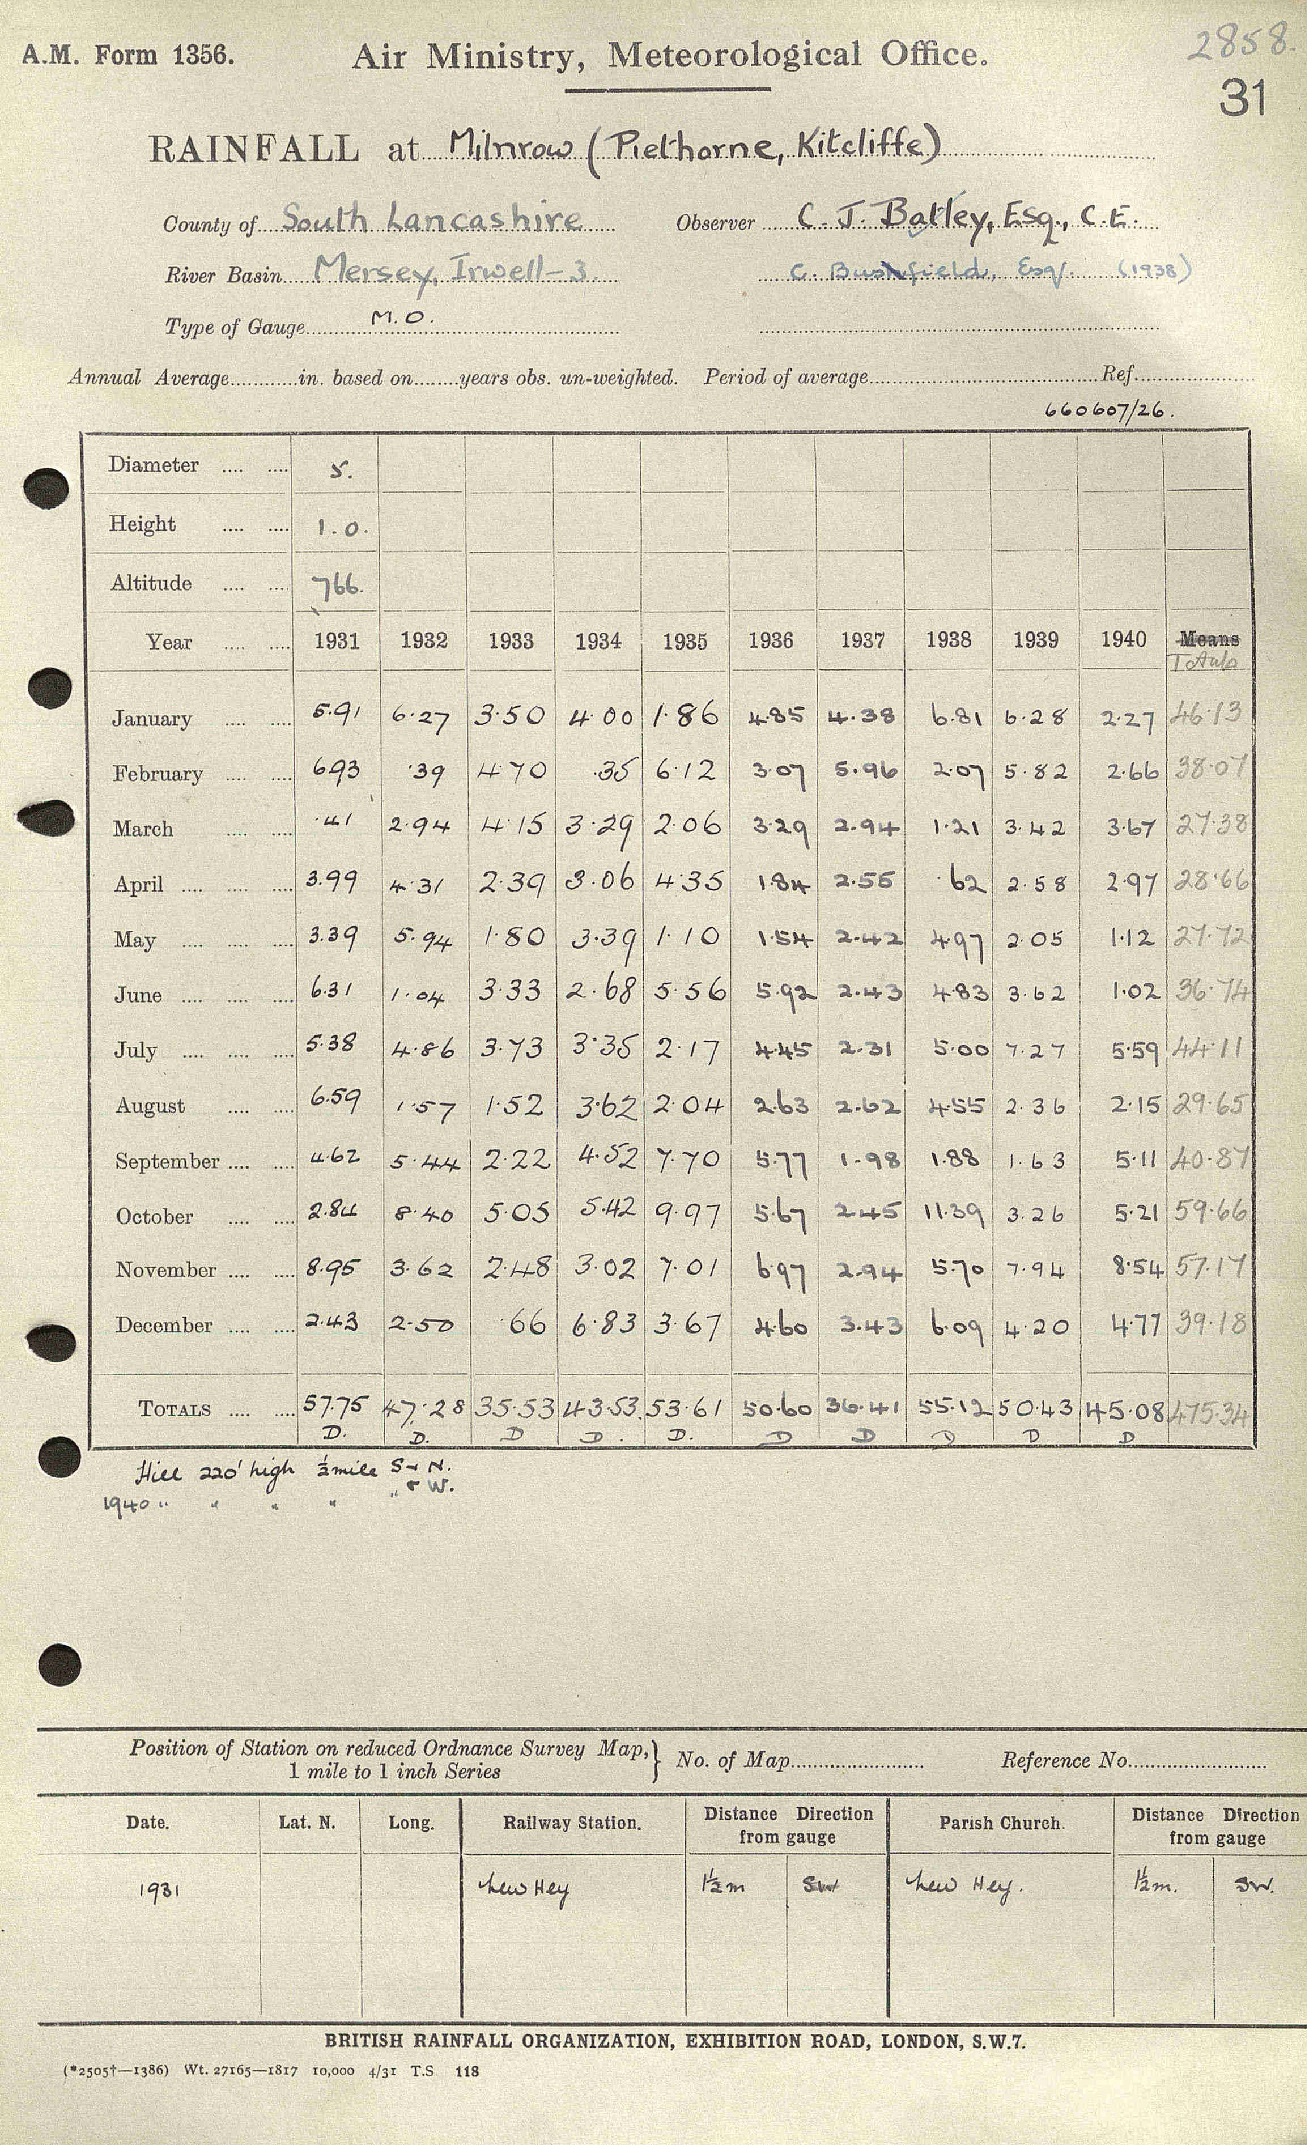 A.M. Form 1356. Air Ministry, Meteorological Office. 2858.
31
RAINFALL at Milnrow (Piethorne, Kitcliffe)
County of South Lancashire Observer C. J. Batley, Esq., C.E.
River Basin Mersey, Irwell-3. C. Bushfield, Esq. (1938)
Type of Gauge M.O.
Annual Average in. based on years obs. un-weighted. Period of average Ref.
660607/26.
Diameter 5.
Height 1.0.
Altitude 766.
Year 1931 1932 1933 1934 1935 1936 1937 1938 1939 1940 Means
Totals
January 5.91 6.27 3.50 4.00 1.86 4.85 4.38 6.81 6.28 2.27 46.13
February 6.93 .39 4.70 .35 6.12 3.07 5.96 2.07 5.82 2.66 38.07
March .41 2.94 4.15 3.29 2.06 3.29 2.94 1.21 3.42 3.67 27.38
April 3.99 4.31 2.39 3.06 4.35 1.84 2.55 .62 2.58 2.97 28.66
May 3.39 5.94 1.80 3.39 1.10 1.54 2.42 4.97 2.05 1.12 27.72
June 6.31 1.04 3.33 2.68 5.56 5.92 2.43 4.83 3.62 1.02 36.74
July 5.38 4.86 3.73 3.35 2.17 4.45 2.31 5.00 7.27 5.59 44.11
August 6.59 1.57 1.52 3.62 2.04 2.63 2.62 4.55 2.36 2.15 29.65
September 4.62 5.44 2.22 4.52 7.70 5.77 1.98 1.88 1.63 5.11 40.87
October 2.84 8.40 5.05 5.42 9.97 5.67 2.45 11.39 3.26 5.21 59.66
November 8.95 3.62 2.48 3.02 7.01 6.97 2.94 5.70 7.94 8.54 57.17
December 2.43 2.50 .66 6.83 3.67 4.60 3.43 6.09 4.20 4.77 39.18
TOTALS 57.75 47.28 35.53 43.53 53.61 50.60 36.41 55.12 50.43 45.08 475.34
D. D. D D. D. D D D D D
Hill 220' high ½ mile S + N.
1940 " " " " " + W.
Position of Station on reduced Ordnance Survey Map, } No. of Map Reference No.
1 mile to 1 inch Series
Date. Lat. N. Long. Railway Station. Distance Direction Parish Church. Distance Direction
from gauge from gauge
1931 New Hey 1½m SW New Hey. 1½m. SW.
BRITISH RAINFALL ORGANIZATION, EXHIBITION ROAD, LONDON, S.W.7.
(*2505†—1386) Wt. 27165—1817 10,000 4/31 T.S 118